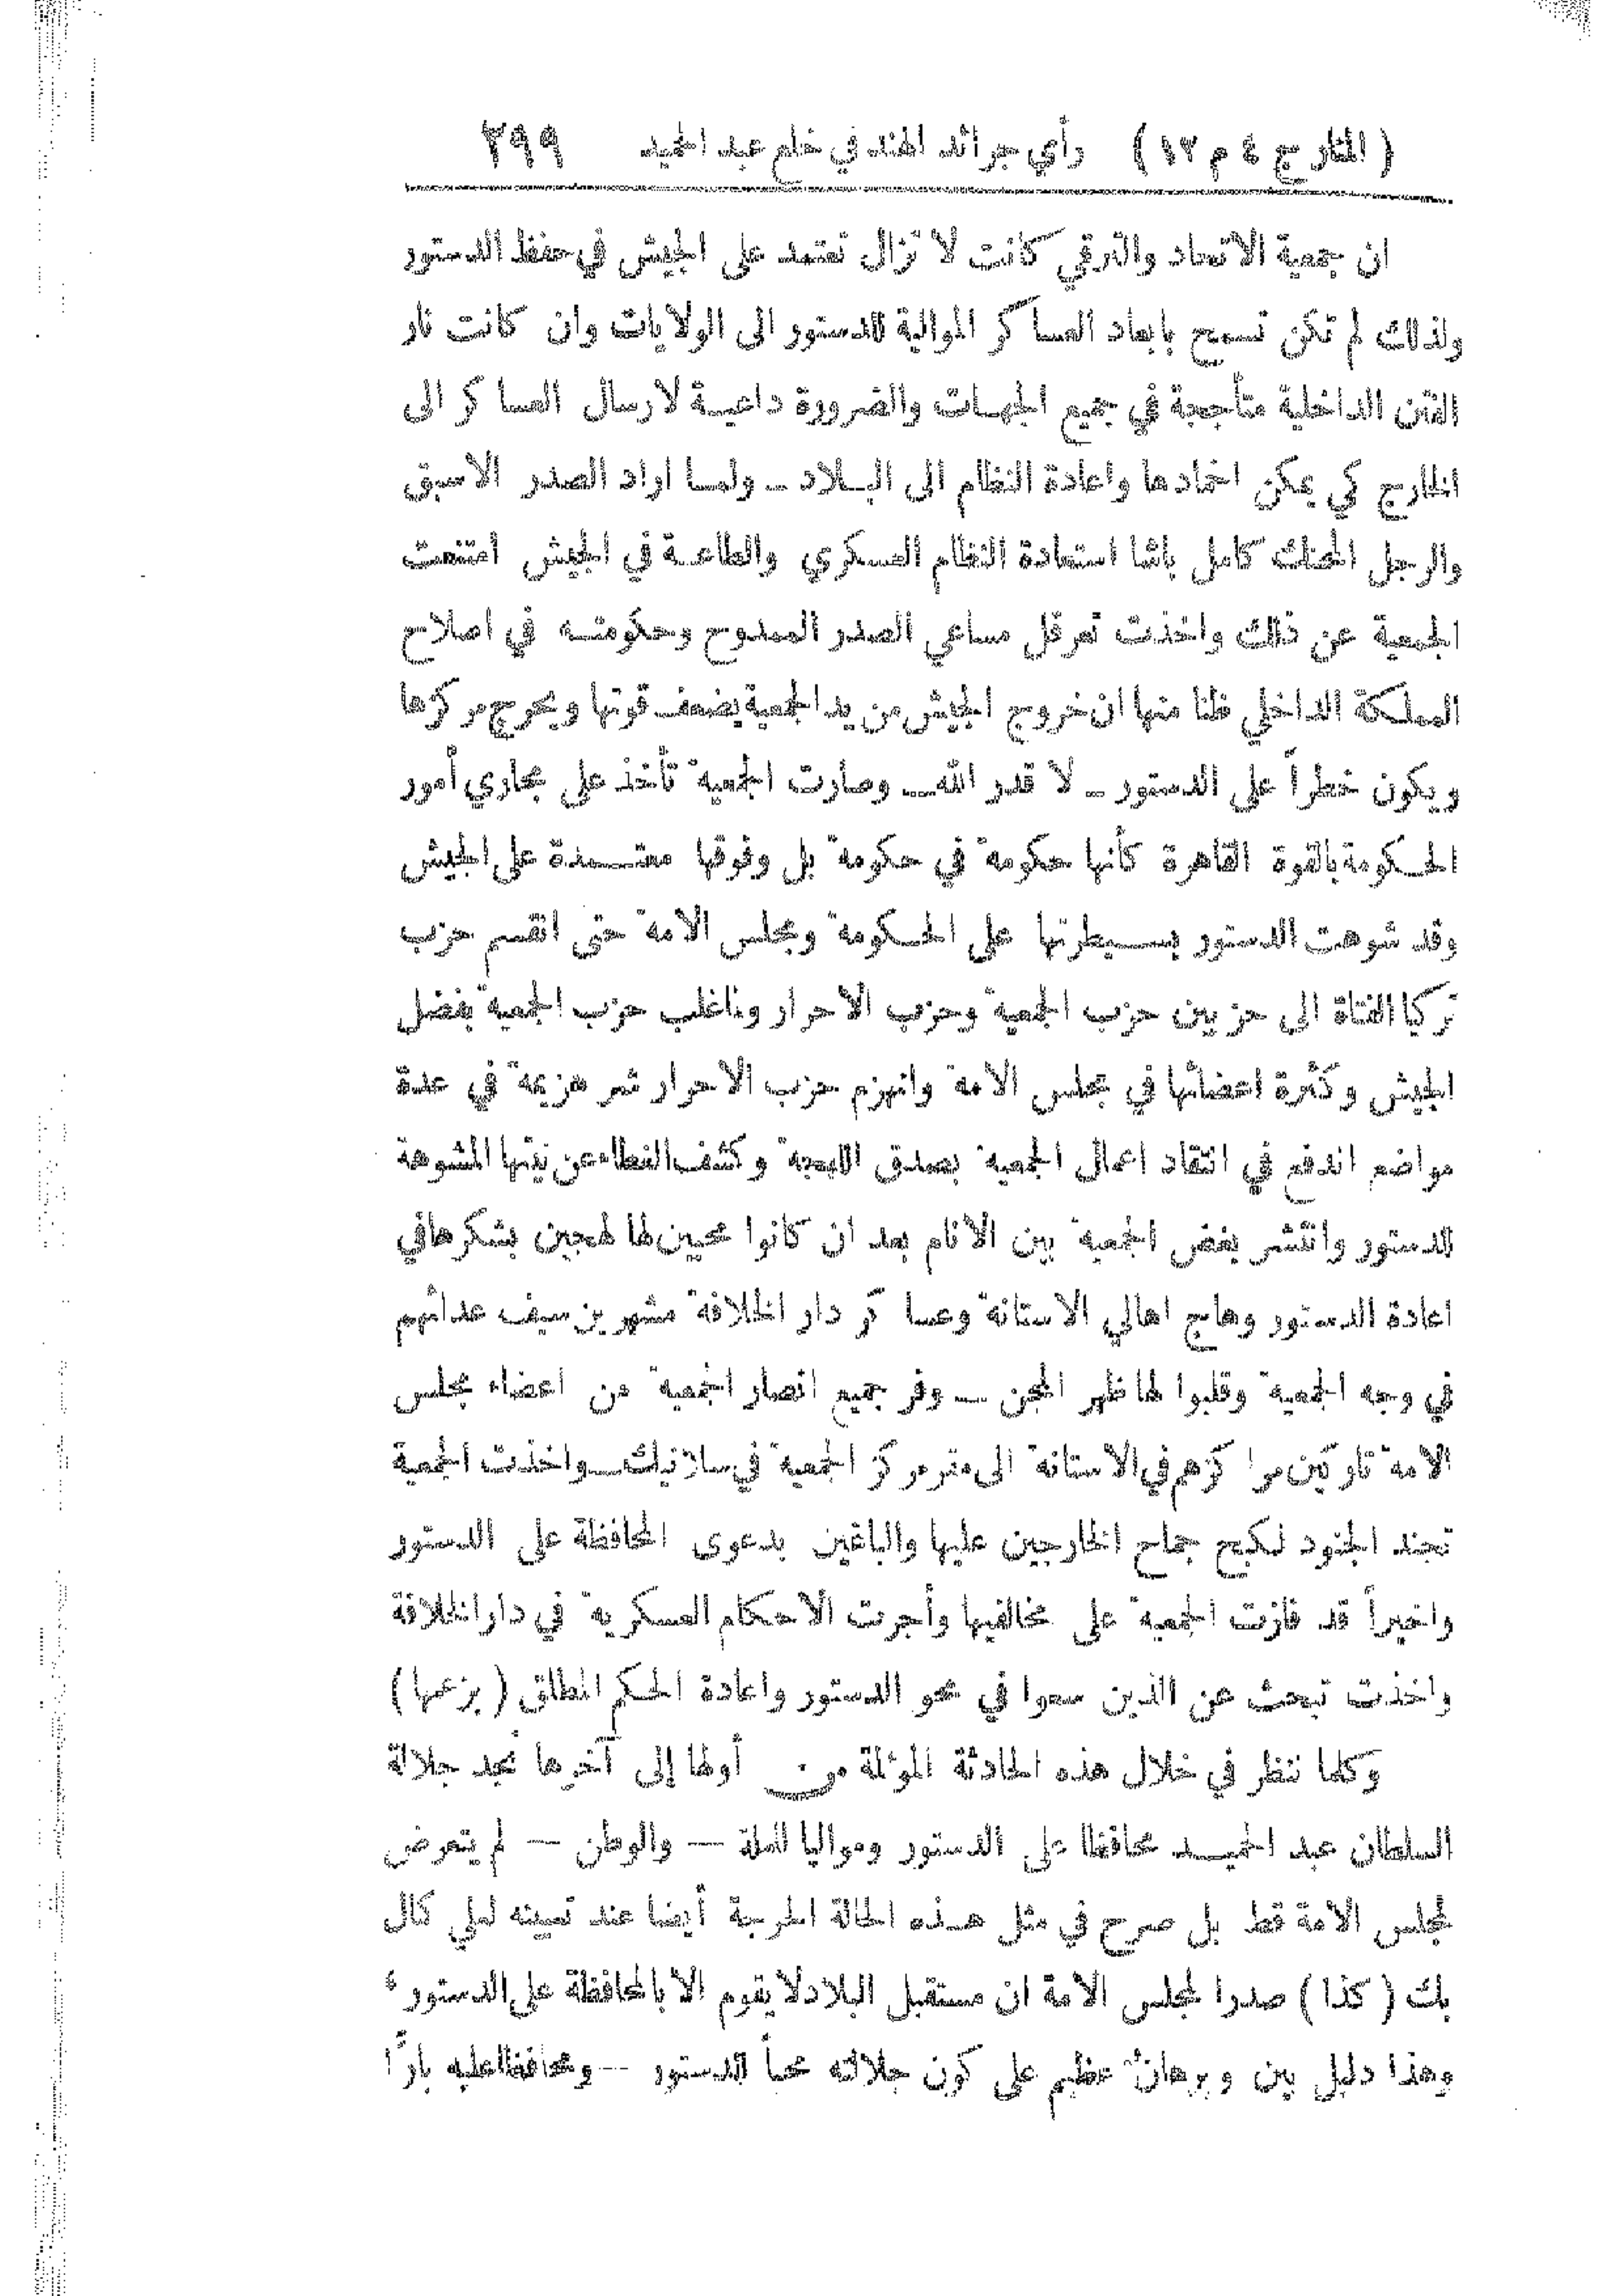 ( المنار ج ٤ م ١٢ ) رأي جرائد الهند في خلع عبد الحميد ٢٩٩
ان جمعية الاتحاد والترقي كانت لا تزال تعتمد على الجيش في حفظ الدستور
ولذلك لم تكن تسمح بابعاد العساكر الموالية للدستور الى الولايات وان كانت نار
الفتن الداخلية متأججة في جميع الجهات والضرورة داعية لارسال العساكر الى
الخارج كي يمكن اخمادها واعادة النظام الى البلاد ـ ولما اراد الصدر الاسبق
والرجل المحنك كامل باشا استعادة النظام العسكري والطاعة في الجيش امتنعت
الجمعية عن ذلك واخذت تعرقل مساعي الصدر الممدوح وحكومته في اصلاح
المملكة الداخلي ظنا منها ان خروج الجيش من يد الجمعية يضعف قوتها ويحرج مركزها
ويكون خطراً على الدستور ـ لا قدر الله ـ وصارت الجمعية تأخذ على مجاري أمور
الحكومة بالقوة القاهرة كأنها حكومة في حكومة بل وفوقها معتمدة على الجيش
وقد شوهت الدستور بسيطرتها على الحكومة ومجلس الامة حتى انقسم حزب
تركيا الفتاة الى حزبين حزب الجمعية وحزب الاحرار ولما غلب حزب الجمعية بفضل
الجيش وكثرة اعضائها في مجلس الامة وانهزم حزب الاحرار شر هزيمة في عدة
مواضع اندفع في انتقاد اعمال الجمعية بصدق اللهجة وكشف الغطاء عن نيتها المشوهة
للدستور وانتشر بغض الجمعية بين الانام بعد ان كانوا محبين لها لهجين بشكرها في
اعادة الدستور وهاج اهالي الاستانة وعساكر دار الخلافة مشهرين سيف عدائهم
في وجه الجمعية وقلبوا لها ظهر المجن ـ وفر جميع انصار الجمعية من اعضاء مجلس
الامة تاركين مراكزهم في الاستانة الى مقر مركز الجمعية في سلانيك ـ واخذت الجمعية
تجند الجنود لكبح جماح الخارجين عليها والباغين بدعوى المحافظة على الدستور
واخيراً قد فازت الجمعية على مخالفيها وأجرت الاحكام العسكرية في دار الخلافة
واخذت تبحث عن الذين سعوا في محو الدستور واعادة الحكم المطلق ( بزعمها )
وكلما ننظر في خلال هذه الحادثة المؤلمة من أولها إلى آخرها نجد جلالة
السلطان عبد الحميد محافظا على الدستور ومواليا للملة — والوطن — لم يتعرض
لمجلس الامة قط بل صرح في مثل هذه الحالة الحرجة أيضا عند تعيينه لعلي كمال
بك ( كذا ) صدرا لمجلس الامة ان مستقبل البلاد لا يقوم الا بالمحافظة على الدستور ،
وهذا دليل بين وبرهان عظيم على كون جلالته محباً للدستور — ومحافظا عليه بارًا